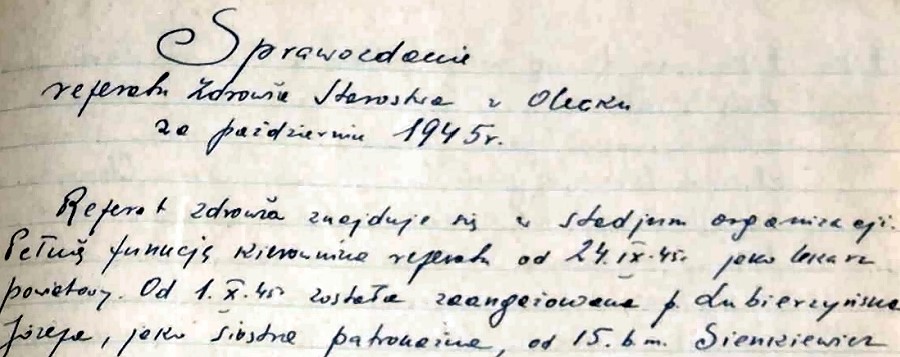 Sprawozdanie
referatu Zdrowia Starostwa w Olecku
za październik 1945r.
Referat zdrowia znajduje się w stadjum organizacji.
Pełnię funkcję kierownika referatu od 24.IX.45r jako lekarz
powiatowy. Od 1.X.45r została zaangażowana p. Lubierzyńska
Józefa, jako siostra patronażna, od 15.b.m. Sienkiewicz